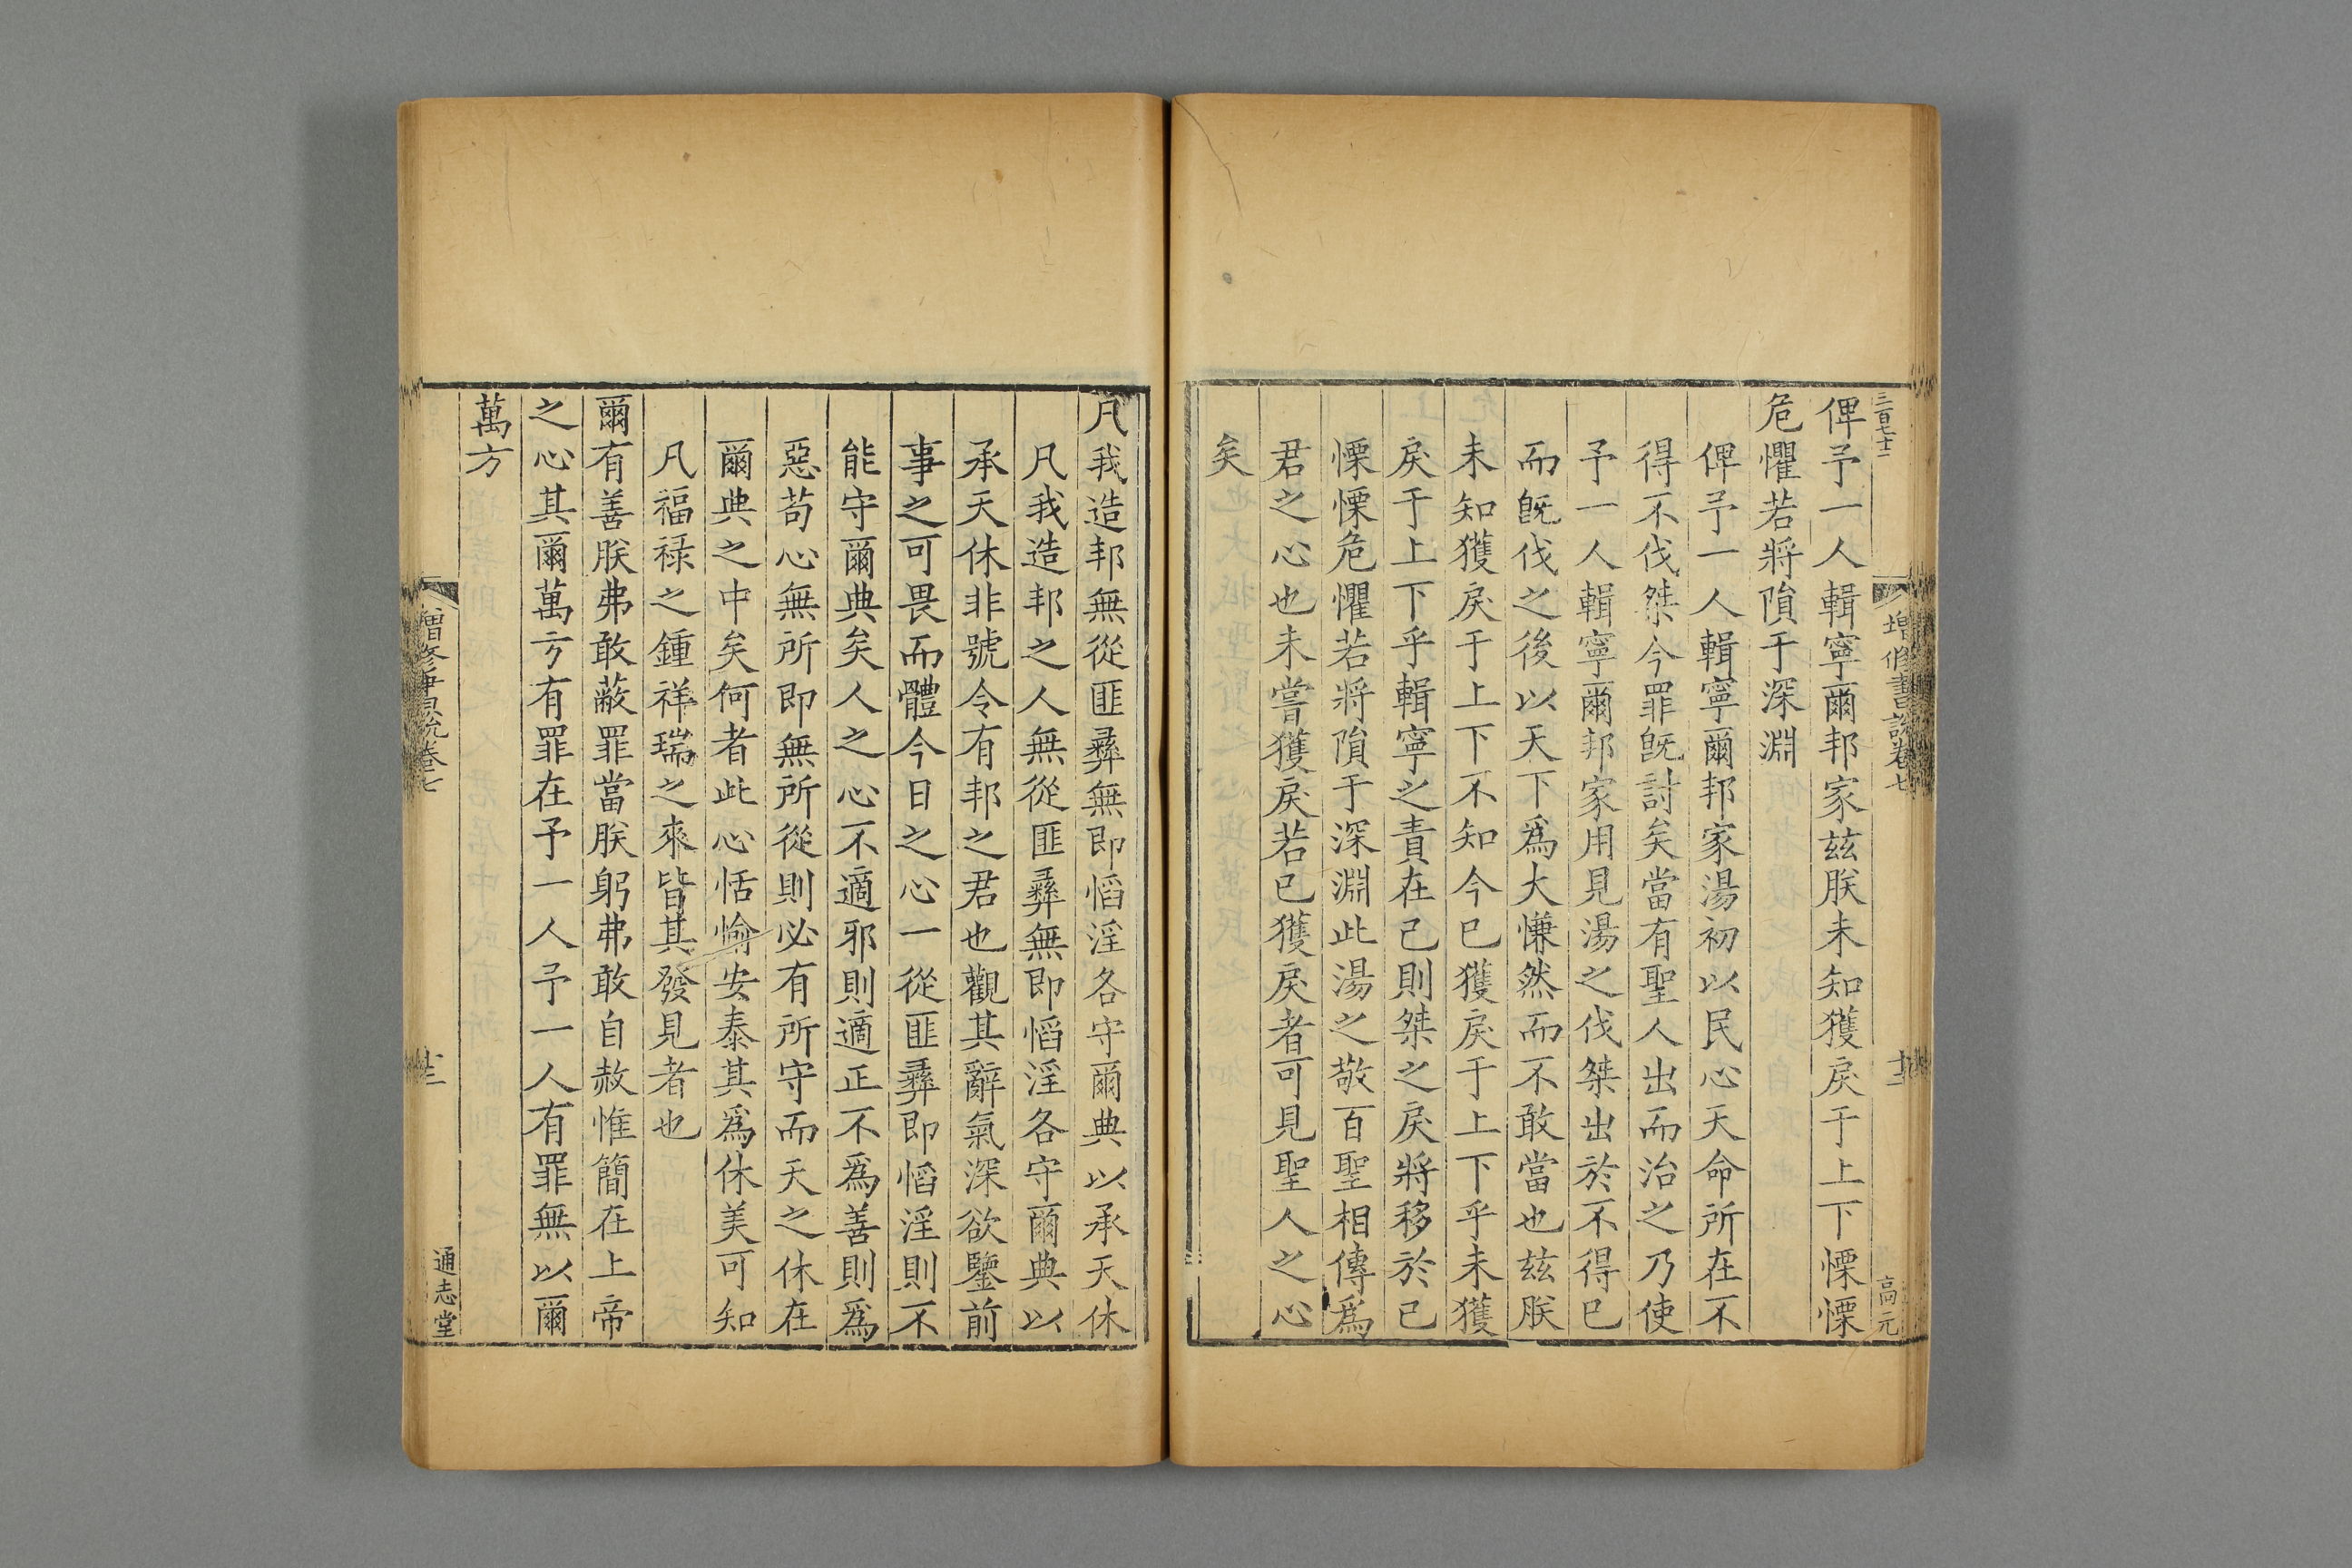 三百七十二
增修書說卷七
十二
高元
俾予一人輯寧爾邦家茲朕未知獲戾于上下慄慄
危懼若將隕于深淵
俾予一人輯寧爾邦家湯初以民心天命所在不
得不伐桀今罪旣討矣當有聖人出而治之乃使
予一人輯寧爾邦家用見湯之伐桀出於不得已
而旣伐之後以天下爲大慊然而不敢當也茲朕
未知獲戾于上下不知今已獲戾于上下乎未獲
戾于上下乎輯寧之責在己則桀之戾將移於己
慄慄危懼若將隕于深淵此湯之敬百聖相傳爲
君之心也未嘗獲戾若已獲戾者可見聖人之心
矣
凡我造邦無從匪彝無即慆淫各守爾典以承天休
凡我造邦之人無從匪彝無即慆淫各守爾典以
承天休非號令有邦之君也觀其辭氣深欲鑒前
事之可畏而體今日之心一從匪彝即慆淫則不
能守爾典矣人之心不適邪則適正不爲善則爲
惡苟心無所即無所從則必有所守而天之休在
爾典之中矣何者此心恬愉安泰其爲休美可知
凡福祿之鍾祥瑞之來皆其發見者也
爾有善朕弗敢蔽罪當朕躬弗敢自赦惟簡在上帝
之心其爾萬方有罪在予一人予一人有罪無以爾
萬方
卷七
通志堂